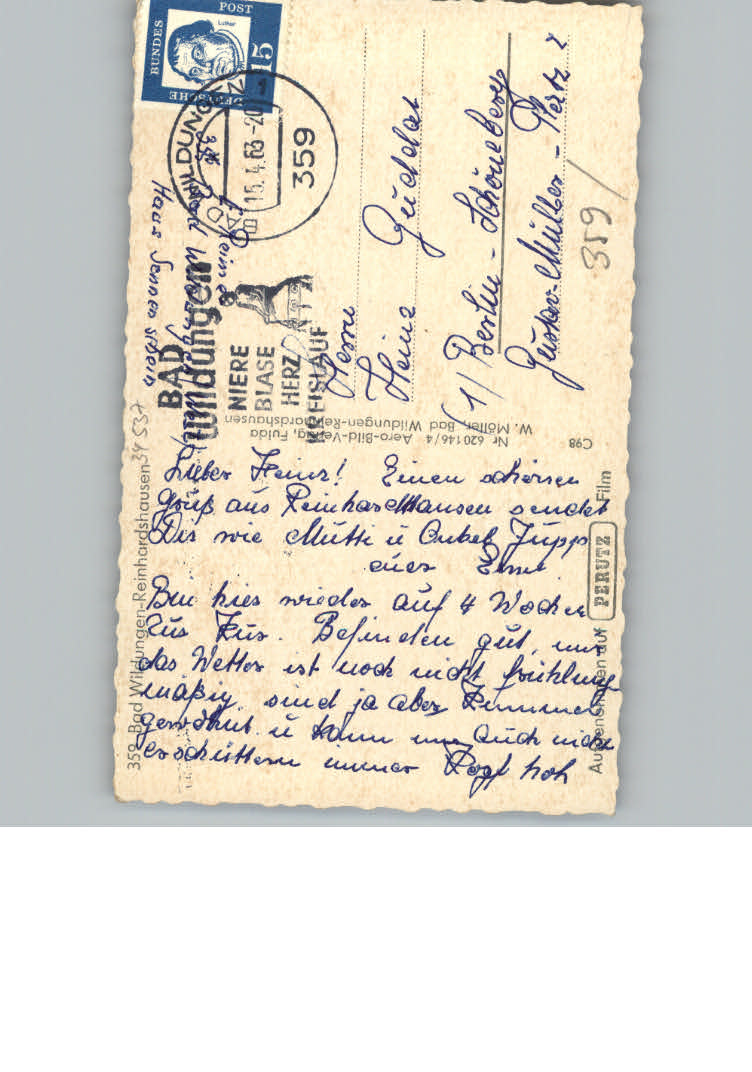 Lieber Heinz! Einen schönen
Gruß aus Reinhardshausen sendet
Dir wie Mutti u Onkel Jupp
euer
Bin hier wieder auf 4 Wochen
zur Kur. Befinden gut, nur
das Wetter ist noch nicht frühlings
mäßig, sind ja aber Kummer
gewöhnt u kann uns auch nicht
erschüttern immer Kopf hoch
Herrn
Heinz Guddat
(1) Berlin-Schöneberg
Gustav-Müller-Platz 2
359/
Haus Sonnenschein
34 537
359 Bad Wildungen-Reinhardshausen
Nr 620146/4 Aero-Bild-Verlag, Fulda
W. Möller, Bad Wildungen-Reinhardshausen
C98
Außenstehen auf PERUTZ Film
DEUTSCHE BUNDESPOST
Luther
15
BAD WILDUNGEN 1
15.4.63-20
359
BAD
Wildungen
NIERE
BLASE
HERZ
KREISLAUF